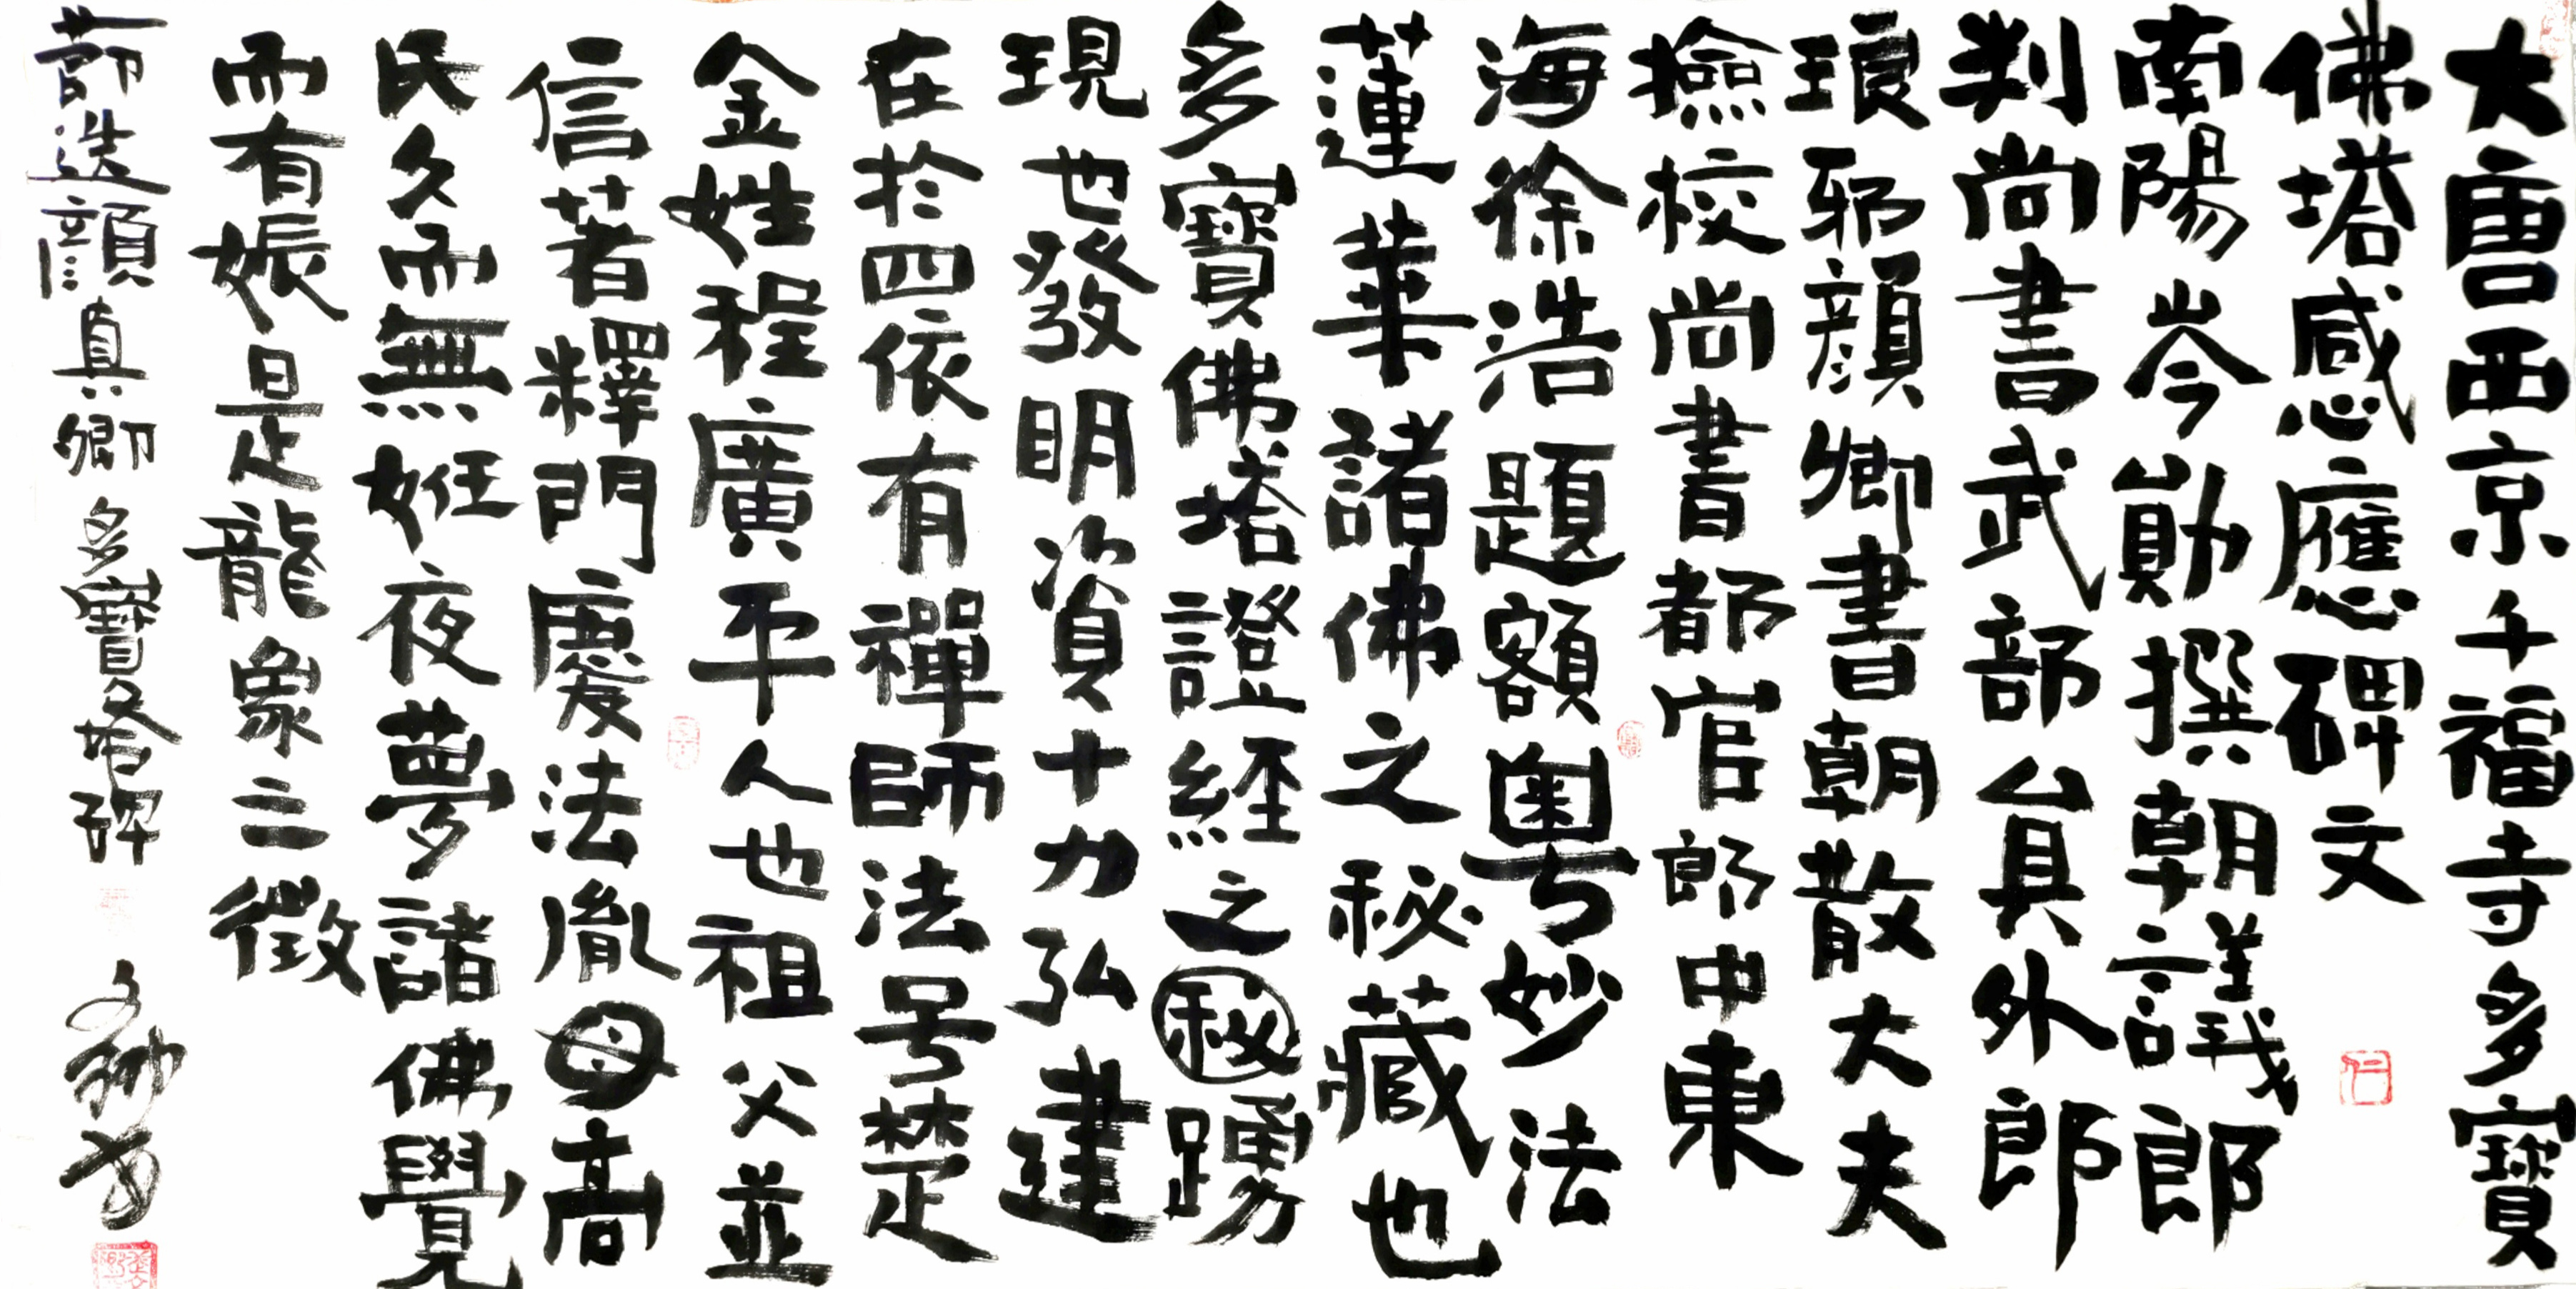 大唐西京千福寺多寶
佛塔感應碑文
南陽岑勛撰朝議郎
判尚書武部員外郎
琅邪顏卿書朝散大夫
撿校尚書都官郎中東
海徐浩題額粵妙法
蓮華諸佛之秘藏也
多寶佛塔證經之秘踴
現也發明資十力弘建
在於四依有禪師法号楚
金姓程廣平人也祖父並
信著釋門慶法胤母高
氏久而無姙夜夢諸佛覺
而有娠是龍象之徵
節迻顏真卿多寶塔碑